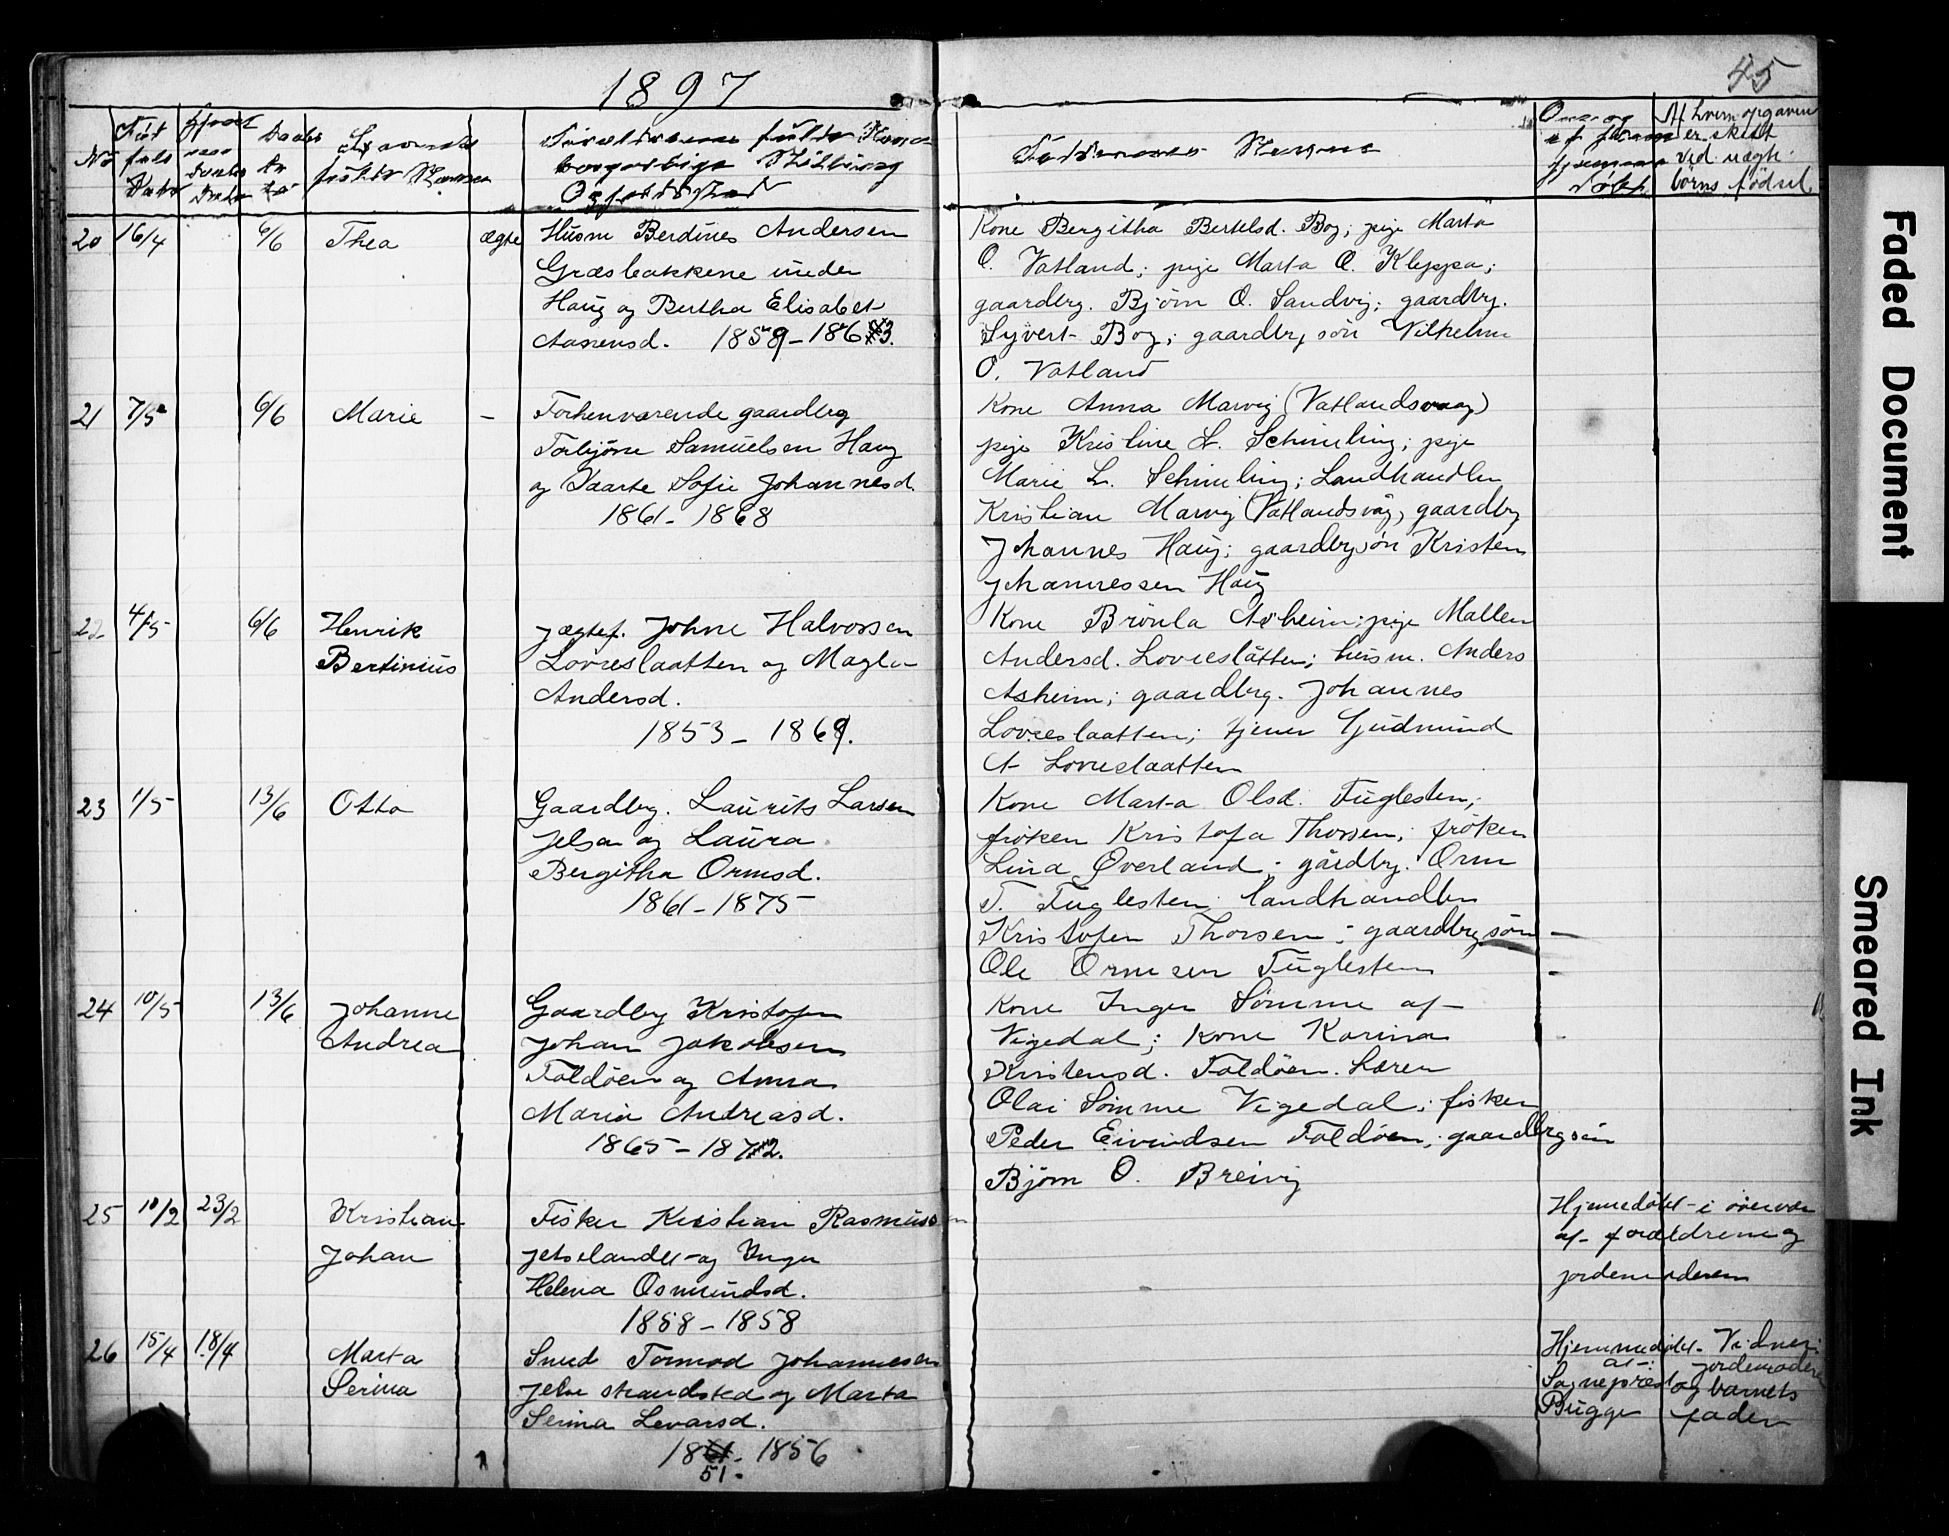 1897
45
No
Fød
sels
Datum
Hjemme
døbt
Datum
Daabs
Da
tum
Barnets
fulde Navn
Forældrenes fulde Navn
borgerlige Stilling
Opholdssted
Faddernes Navne
Om og
af hvem
hjemme
døbt
Af hvem opgaven
er skett
ved uægte
börns födsel
20 16/4 6/6 Thea ægte
Husm Berdines Andersen
Græsbakkene under
Haug og Bertha Elisabet
Aanensd. 1859-1863.
Kone Bergitha Bertelsd. Bog; pige Marta
O. Vatland; pige Marta O. Kleppa;
gaardbrg. Bjørn O. Sandvig; gaardbrg.
Syvert Bog; gaardbrg sön Vilhelm
O. Vatland
21 7/5 6/6 Marie -
Forhenværende gaardbrg
Torbjörn Samuelsen Haug
og Vaarte Sofie Johannesd.
1861-1868
Kone Anna Marvig (Vatlandsvaag)
pige Kristine L. Schimeling; pige
Marie L. Schimeling; Landhandler
Kristian Marvig (Vatlandsvåg, gaardbrg
Johannes Haug; gaardbrgsön Kristen
Johannessen Haug
22 4/5 6/6 Henrik
Bertinius
jægtef. Johne Halvorsen
Lovreslaatten og Magla
Andersd.
1853-1869.
Kone Brönla Asheim; pige Mallen
Andersd. Lovreslåtten; husm. Anders
Asheim; gaardbrg. Johannes
Lovreslaatten; tjener Gudmund
A Lovreslaatten
23 1/5 13/6 Otto
Gaardbrg. Laurits Larsen
Jelsa og Laura
Bergitha Ormsd.
1861-1875
Kone Marta Olsd. Fuglesten;
fröken Kristofa Thorsen; fröken
Lina Øverland; gårdbrg. Orm
T. Fuglesten; landhandler
Kristofer Thorsen; gaardbrgsön
Ole Ormsen Fuglesten
24 10/5 13/6 Johanne
Andrea
Gaardbrg Kristofer
Johan Jakobsen
Foldöen og Anna
Maria Andreasd.
1865-1872.
Kone Inger Sömme af
Vigedal; kone Karina
Kristensd. Foldöen. Lærer
Olai Sömme Vigedal; fisker
Peder Eivindsen Foldöen; gaardbrgsön
Björn O. Breivig
25 10/2 23/2 Kristian
Johan
Fisker Kristian Rasmussen
Jelselandet og Inger
Helena Osmundsd.
1858-1858
Hjemmedöbt i overvær
af forældrene og
jordemoderen
26 15/4 18/4 Marta
Serina
Smed Tormod Johannesen
Jelse strandsted og Marta
Serina Levarsd.
1861-1856
51.
Hjemmedöbt Vidner:
af: jordemoder
Sogneprest og barnets
Bugge fader
Faded Document
Smeared Ink